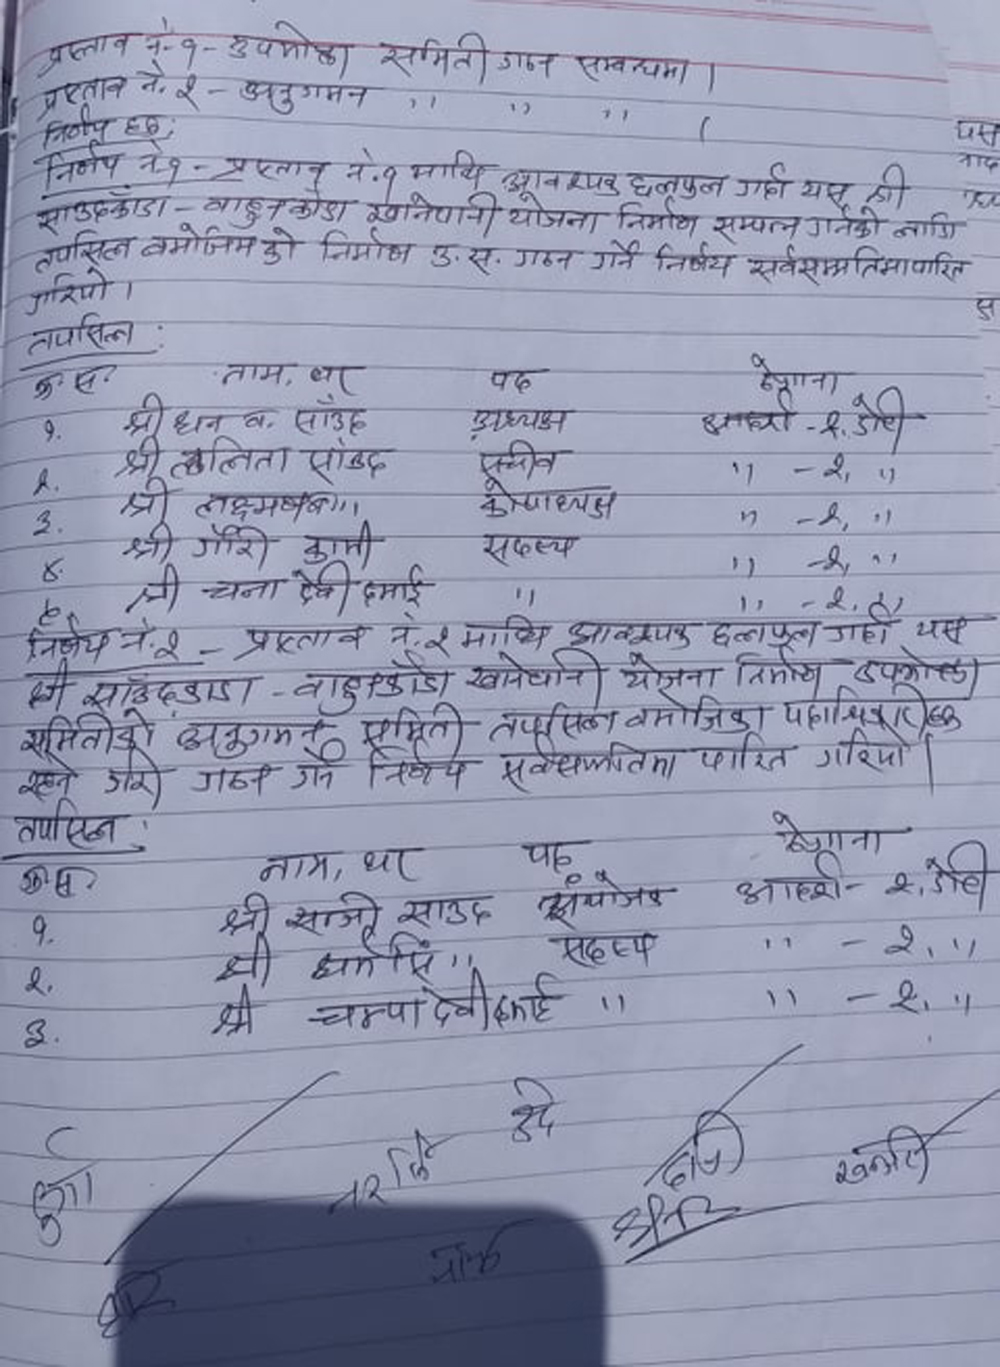 प्रस्ताव नं. १ - उपभोक्ता समिती गठन सम्बन्धमा ।
प्रस्ताव नं. २ - अनुगमन " " " ।
निर्णय हरु:
निर्णय नं. १ - प्रस्ताव नं. १ माथि आवश्यक छलफल गर्दा यस श्री
साउदकाँडा - वाहुनकाँडा खानेपानी योजना निर्माण सम्पन्न गर्नको लागि
तपसिल बमोजिमको निर्माण उ. स. गठन गर्ने निर्णय सर्वसम्मतिमा पारित
गरियो ।
तपसिल :
क्र. स. नाम, थर पद ठेगाना
१. श्री धन ब. साँउद अध्यक्ष आदर्श - २, डोटी
२. श्री ललिता साँउद सचीव " - २, "
३. श्री लक्ष्मण ब. " कोषाध्यक्ष " - २, "
४. श्री गौरी कामी सदस्य " - २, "
५. श्री चना देवी दमाई " " - २, "
निर्णय नं. २ - प्रस्ताव नं. २ माथि आवश्यक छलफल गर्दा यस
श्री साउँदकाडा - वाहुनकाँडा खानेपानी योजना निर्माण उपभोक्ता
समितीको अनुगमन समिती तपसिल बमोजिमका पदाधिकारीहरु
रहने गरी गठन गर्ने निर्णय सर्वसम्मतिमा पारित गरियो ।
तपसिल :
क्र. स. नाम, थर पद ठेगाना
१. श्री साजी साउद संयोजक आदर्श - २, डोटी
२. श्री धर्म सिं " सदस्य " - २, "
३. श्री चम्पा देवी दमाई " " - २, "